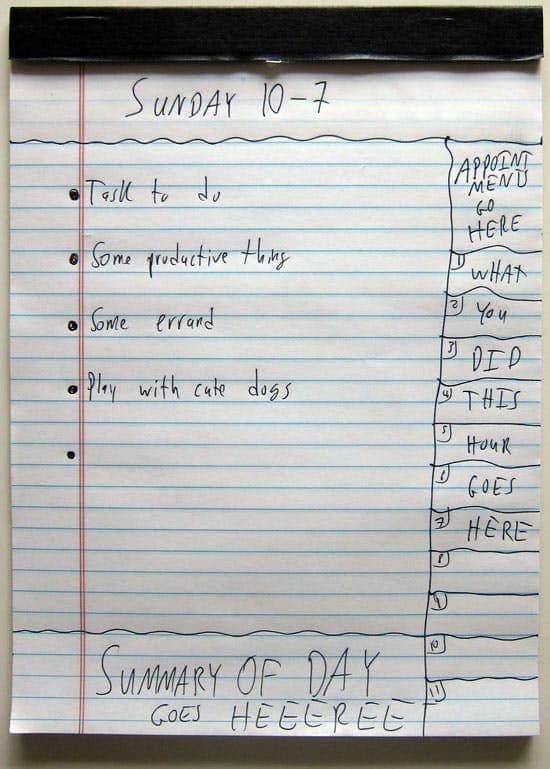 SUNDAY 10-7
Task to do
Some productive thing
Some errand
Play with cute dogs
APPOINT
MENTS
GO
HERE
1 WHAT
2 YOU
3 DID
4 THIS
5 HOUR
6 GOES
7 HERE
8
9
10
11
SUMMARY OF DAY
GOES HEEEREEE